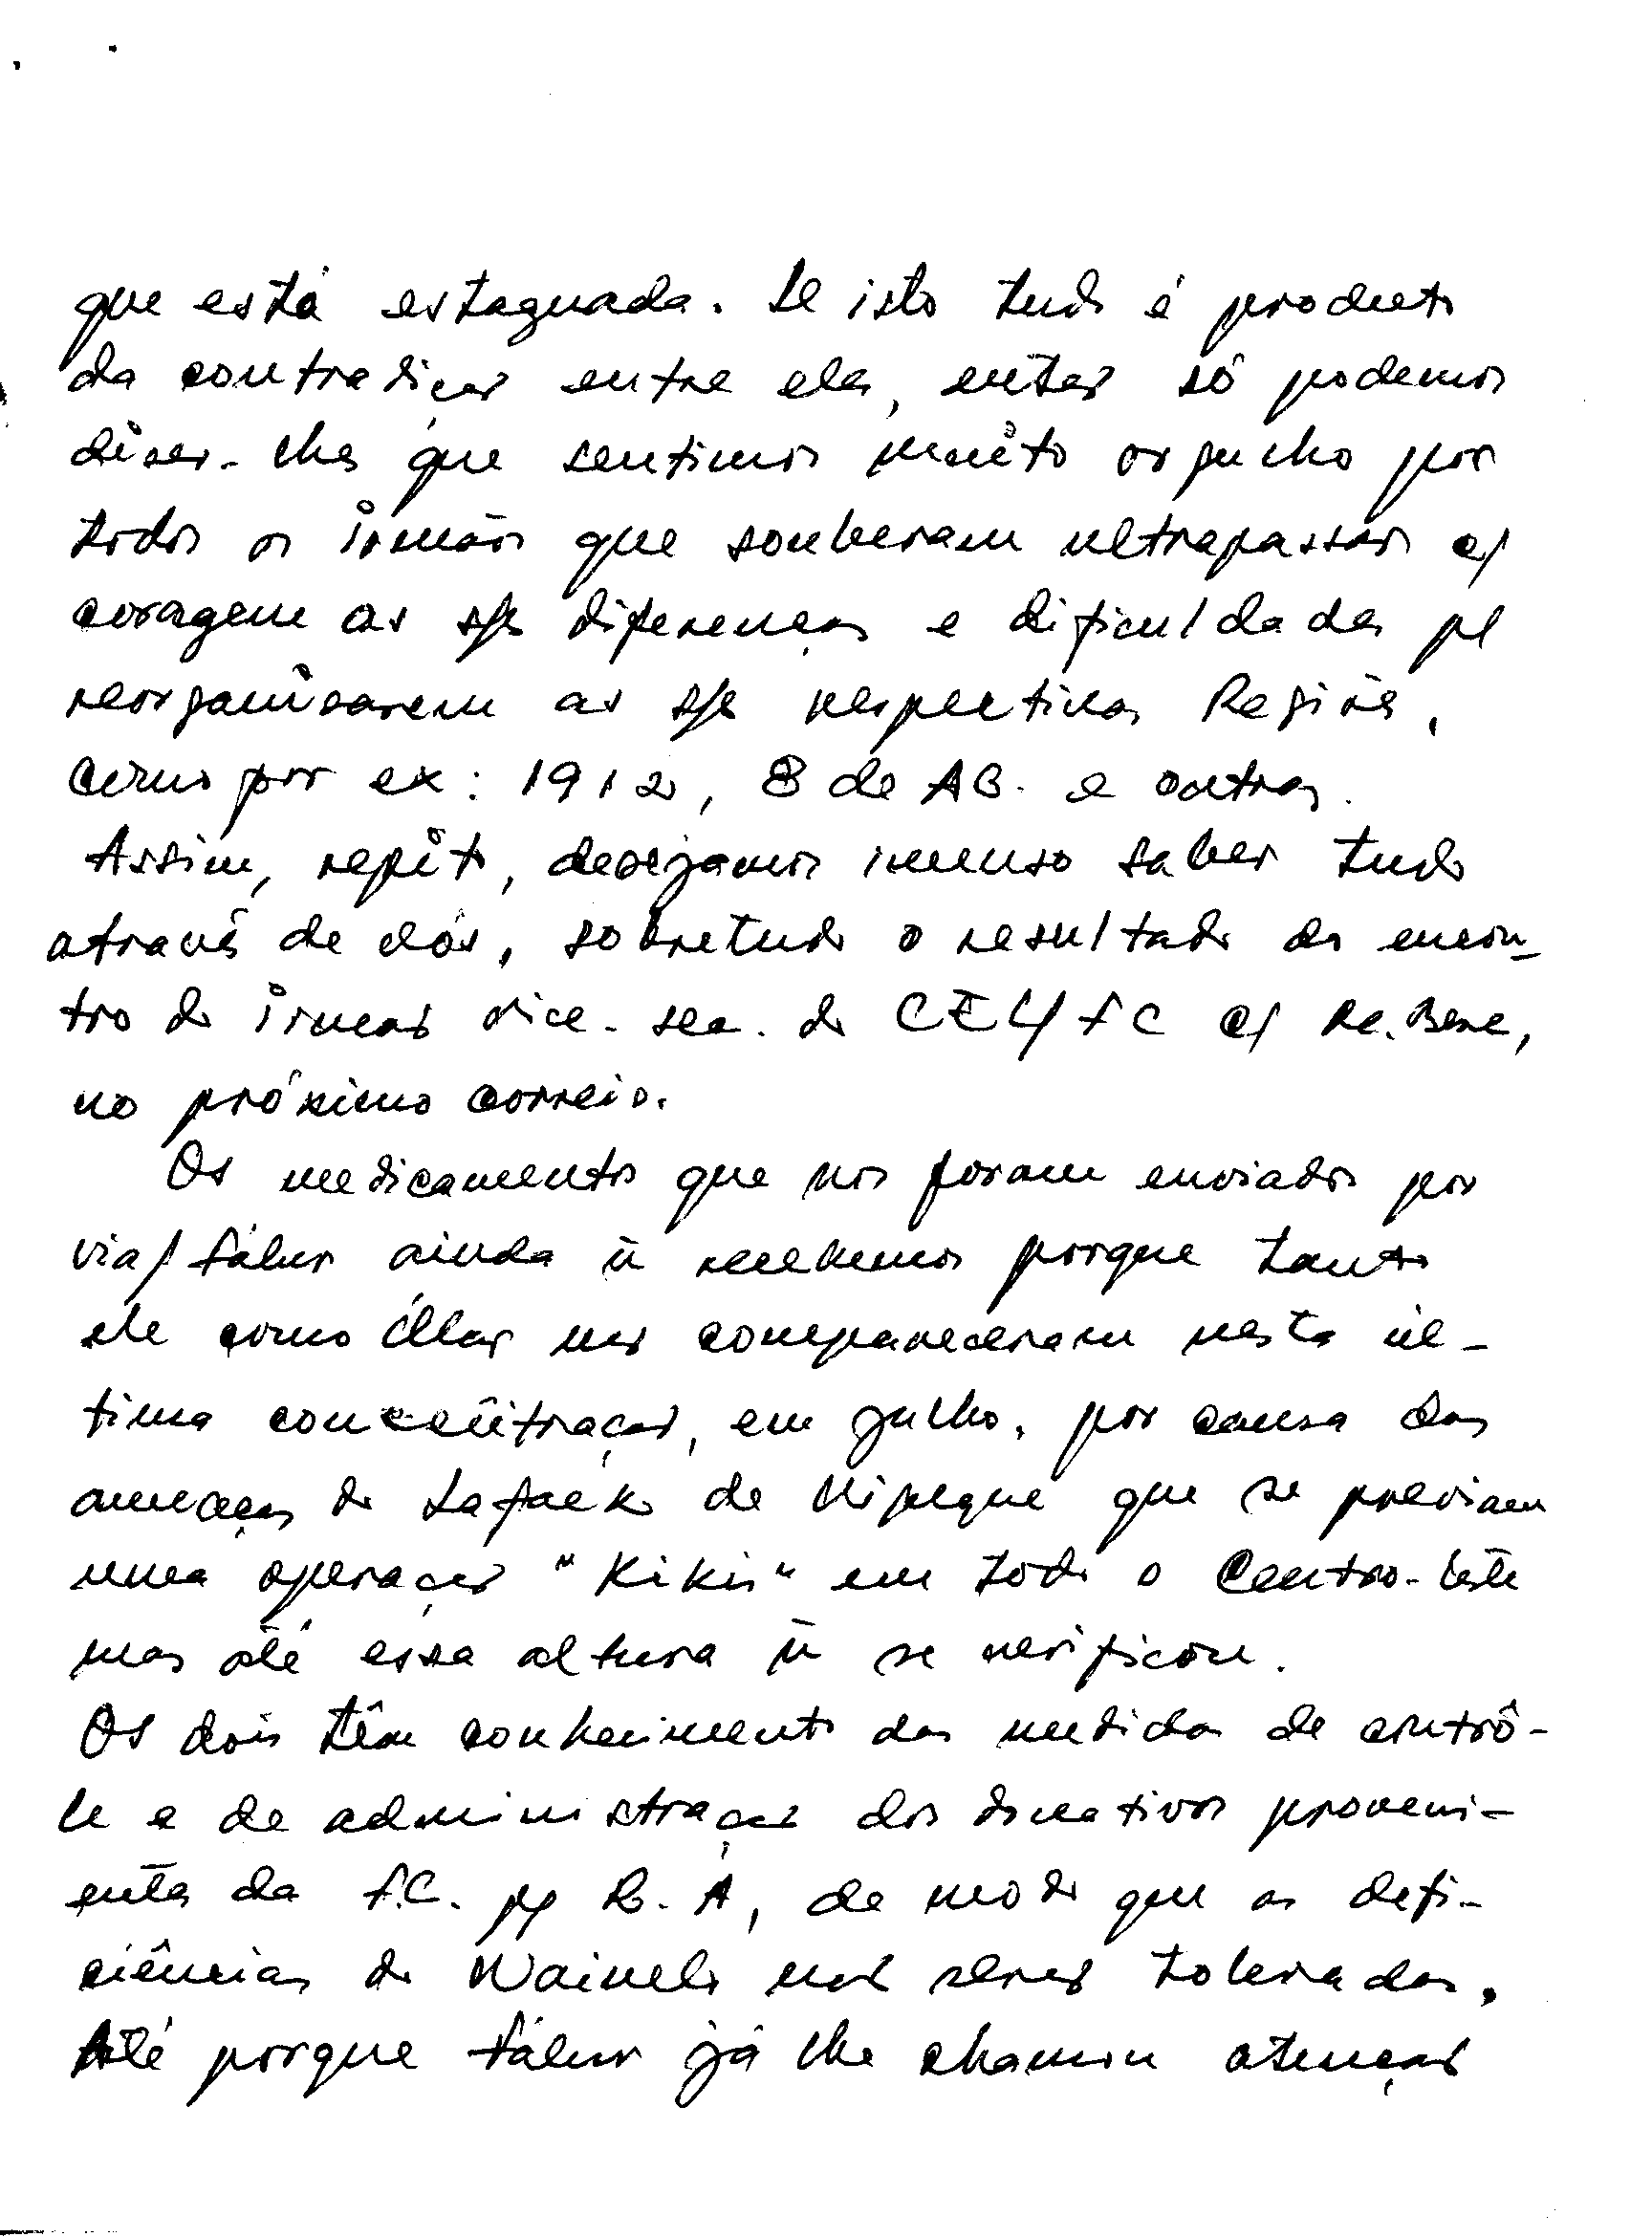 que está estagnada. Se isto tudo é producto
da contradição entre eles, então só podemos
dizer-lhes que sentimos muito orgulho por
todos os irmãos que souberam ultrapassar c/
coragem as s/s diferenças e dificuldades p/
reorganizarem as s/s respectivas Regiões,
como por ex: 1912, 8 de AB. e outras.
Assim, repito, desejamos imenso saber tudo
através de vós, sobretudo o resultado do encon-
tro do irmão vice-sec. do CE/FC c/ Re. Bere,
no próximo correio.
Os medicamentos que nos foram enviados por
via/ Fálur ainda ñ recebemos porque tanto
ele como Íllas não compareceram nesta úl-
tima concentração, em julho, por causa das
ameaças do Lafaek de Vipeque que se previam
uma operação "Kikis" em todo o Centro-Leste
mas até essa altura ñ se verificou.
Os dois têm conhecimento das medidas de contrô-
le e de administração dos donativos proveni-
entes da F.C. p/ R. A, de modo que as defi-
ciências do Waimele não serão toleradas.
Até porque Fálur já lhe chamou atenção